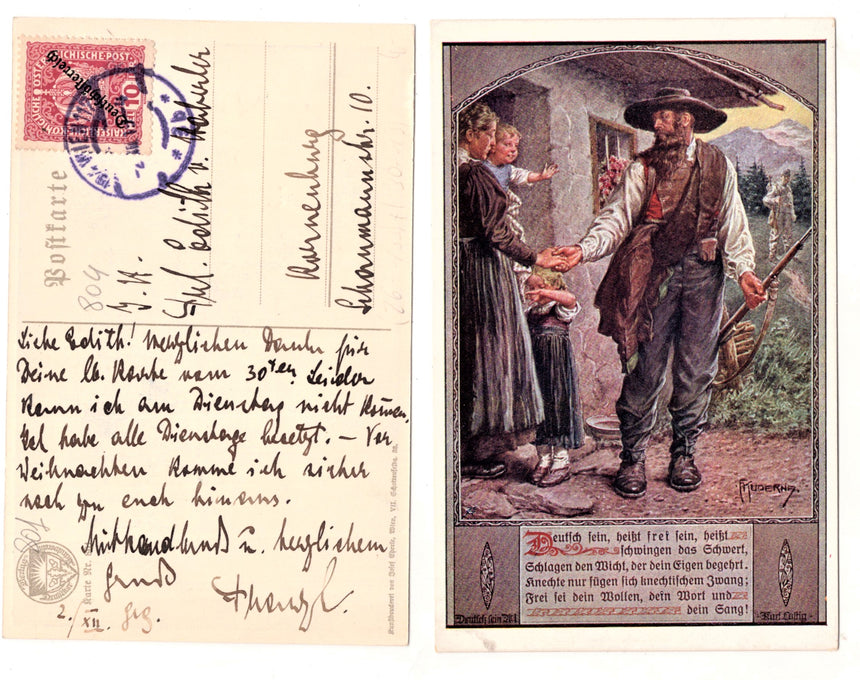 KAISERLICHE KÖNIGLICHE ÖSTERREICHISCHE POST
10
Deutschösterreich
WIEN
Postkarte
804
Frl. Edith v.
Korneuburg
Schaumannstr. 10.
Liebe Edith! Herzlichen Dank für
Deine lb. Karte vom 30ten. Leider
kann ich am Dienstag nicht kommen.
habe alle Dienstage besetzt. – Vor
Weihnachten komme ich sicher
noch zu euch hinaus.
u. herzlichem
Gruß
2./XII.
Karte Nr.
Kunstdruckerei von Josef Eberle, Wien, VII. Schottenfeldg. 38.
Deutsch sein, heißt frei sein, heißt
schwingen das Schwert,
Schlagen den Wicht, der dein Eigen begehrt.
Knechte nur fügen sich knechtischem Zwang;
Frei sei dein Wollen, dein Wort und
dein Sang!
Deutsch sein
Karl Lustig